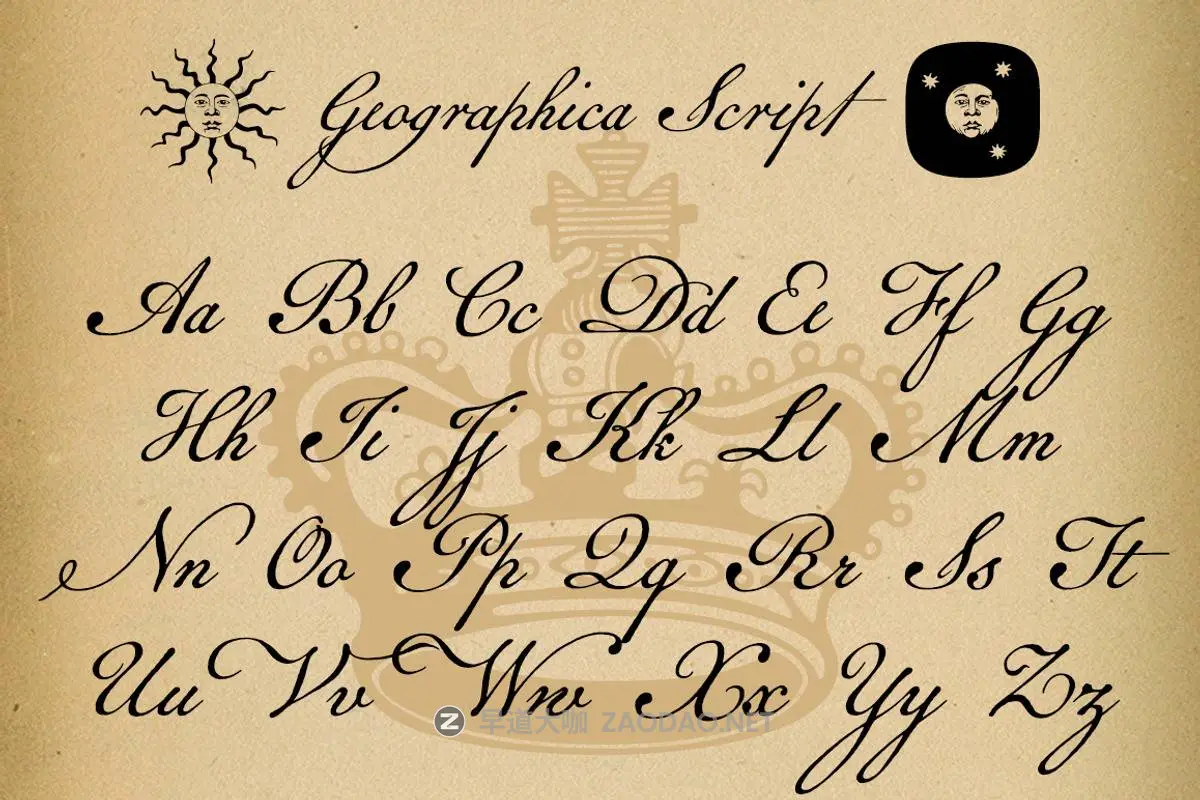 Geographica Script
Aa Bb Cc Dd Ee Ff Gg
Hh Ii Jj Kk Ll Mm
Nn Oo Pp Qq Rr Ss Tt
Uu Vv Ww Xx Yy Zz
Z 早道大咖 ZAODAO.NET